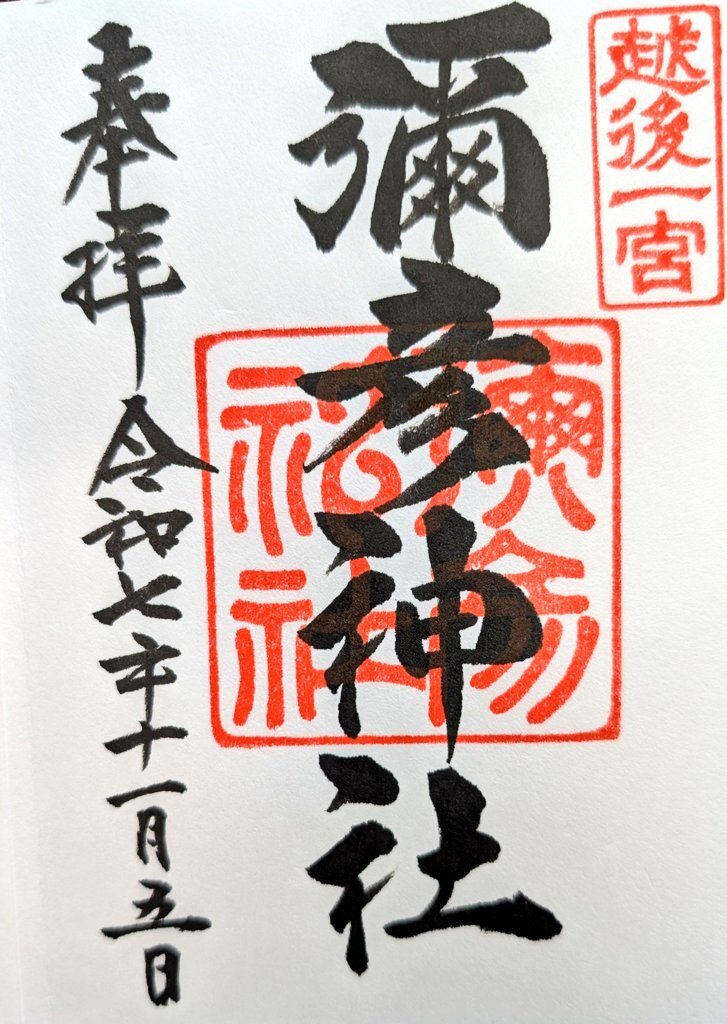 越後一宮
彌彦神社
奉拝
令和七年十一月五日